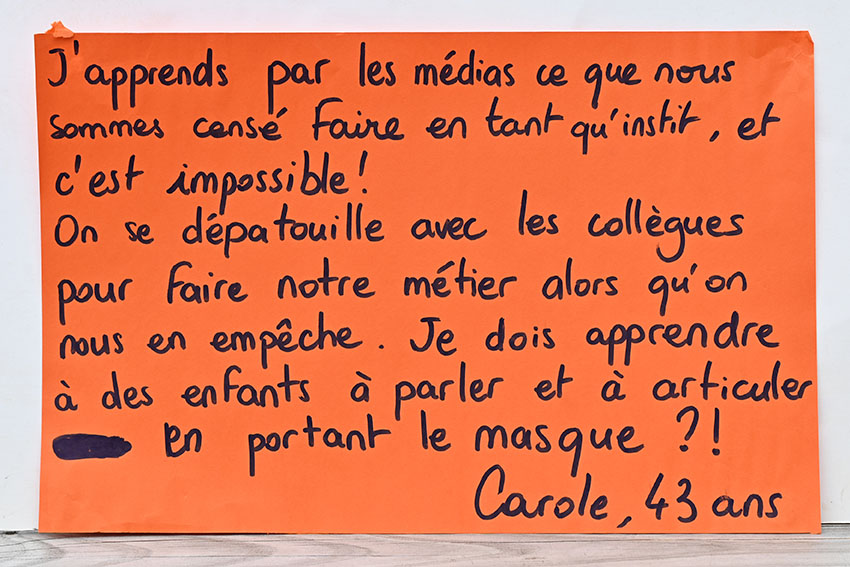 J'apprends par les médias ce que nous
sommes censé faire en tant qu'instit, et
c'est impossible!
On se dépatouille avec les collègues
pour faire notre métier alors qu'on
nous en empêche. Je dois apprendre
à des enfants à parler et à articuler
en portant le masque ?!
Carole, 43 ans